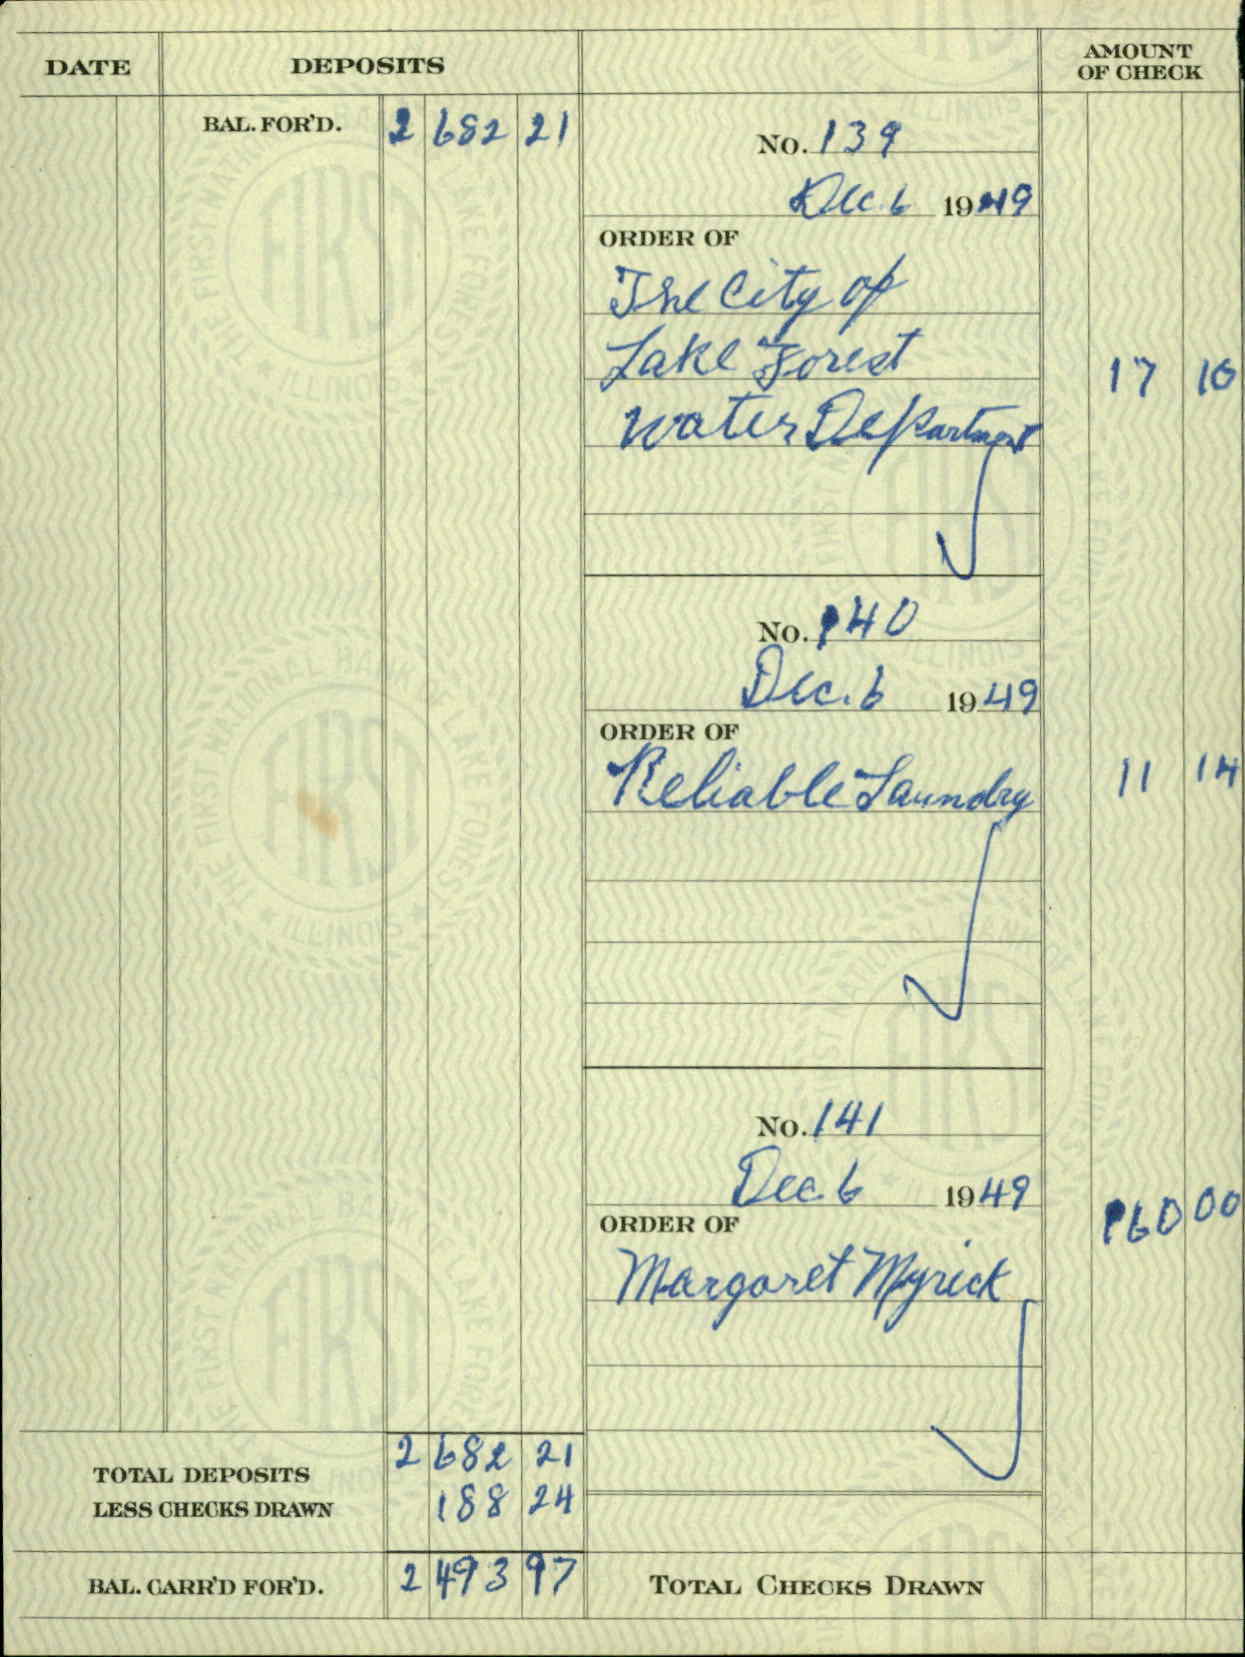 DATE DEPOSITS AMOUNT OF CHECK
BAL. FOR'D. 2 682 21
No. 139
Dec. 6 1949
ORDER OF
The City of
Lake Forest 17 10
Water Department
No. 140
Dec. 6 1949
ORDER OF
Reliable Laundry 11 14
No. 141
Dec. 6 1949
ORDER OF
Margaret Myrick 160 00
TOTAL DEPOSITS 2 682 21
LESS CHECKS DRAWN 188 24
BAL. CARR'D FOR'D. 2 493 97
TOTAL CHECKS DRAWN
THE FIRST NATIONAL BANK OF LAKE FOREST
ILLINOIS
FIRST